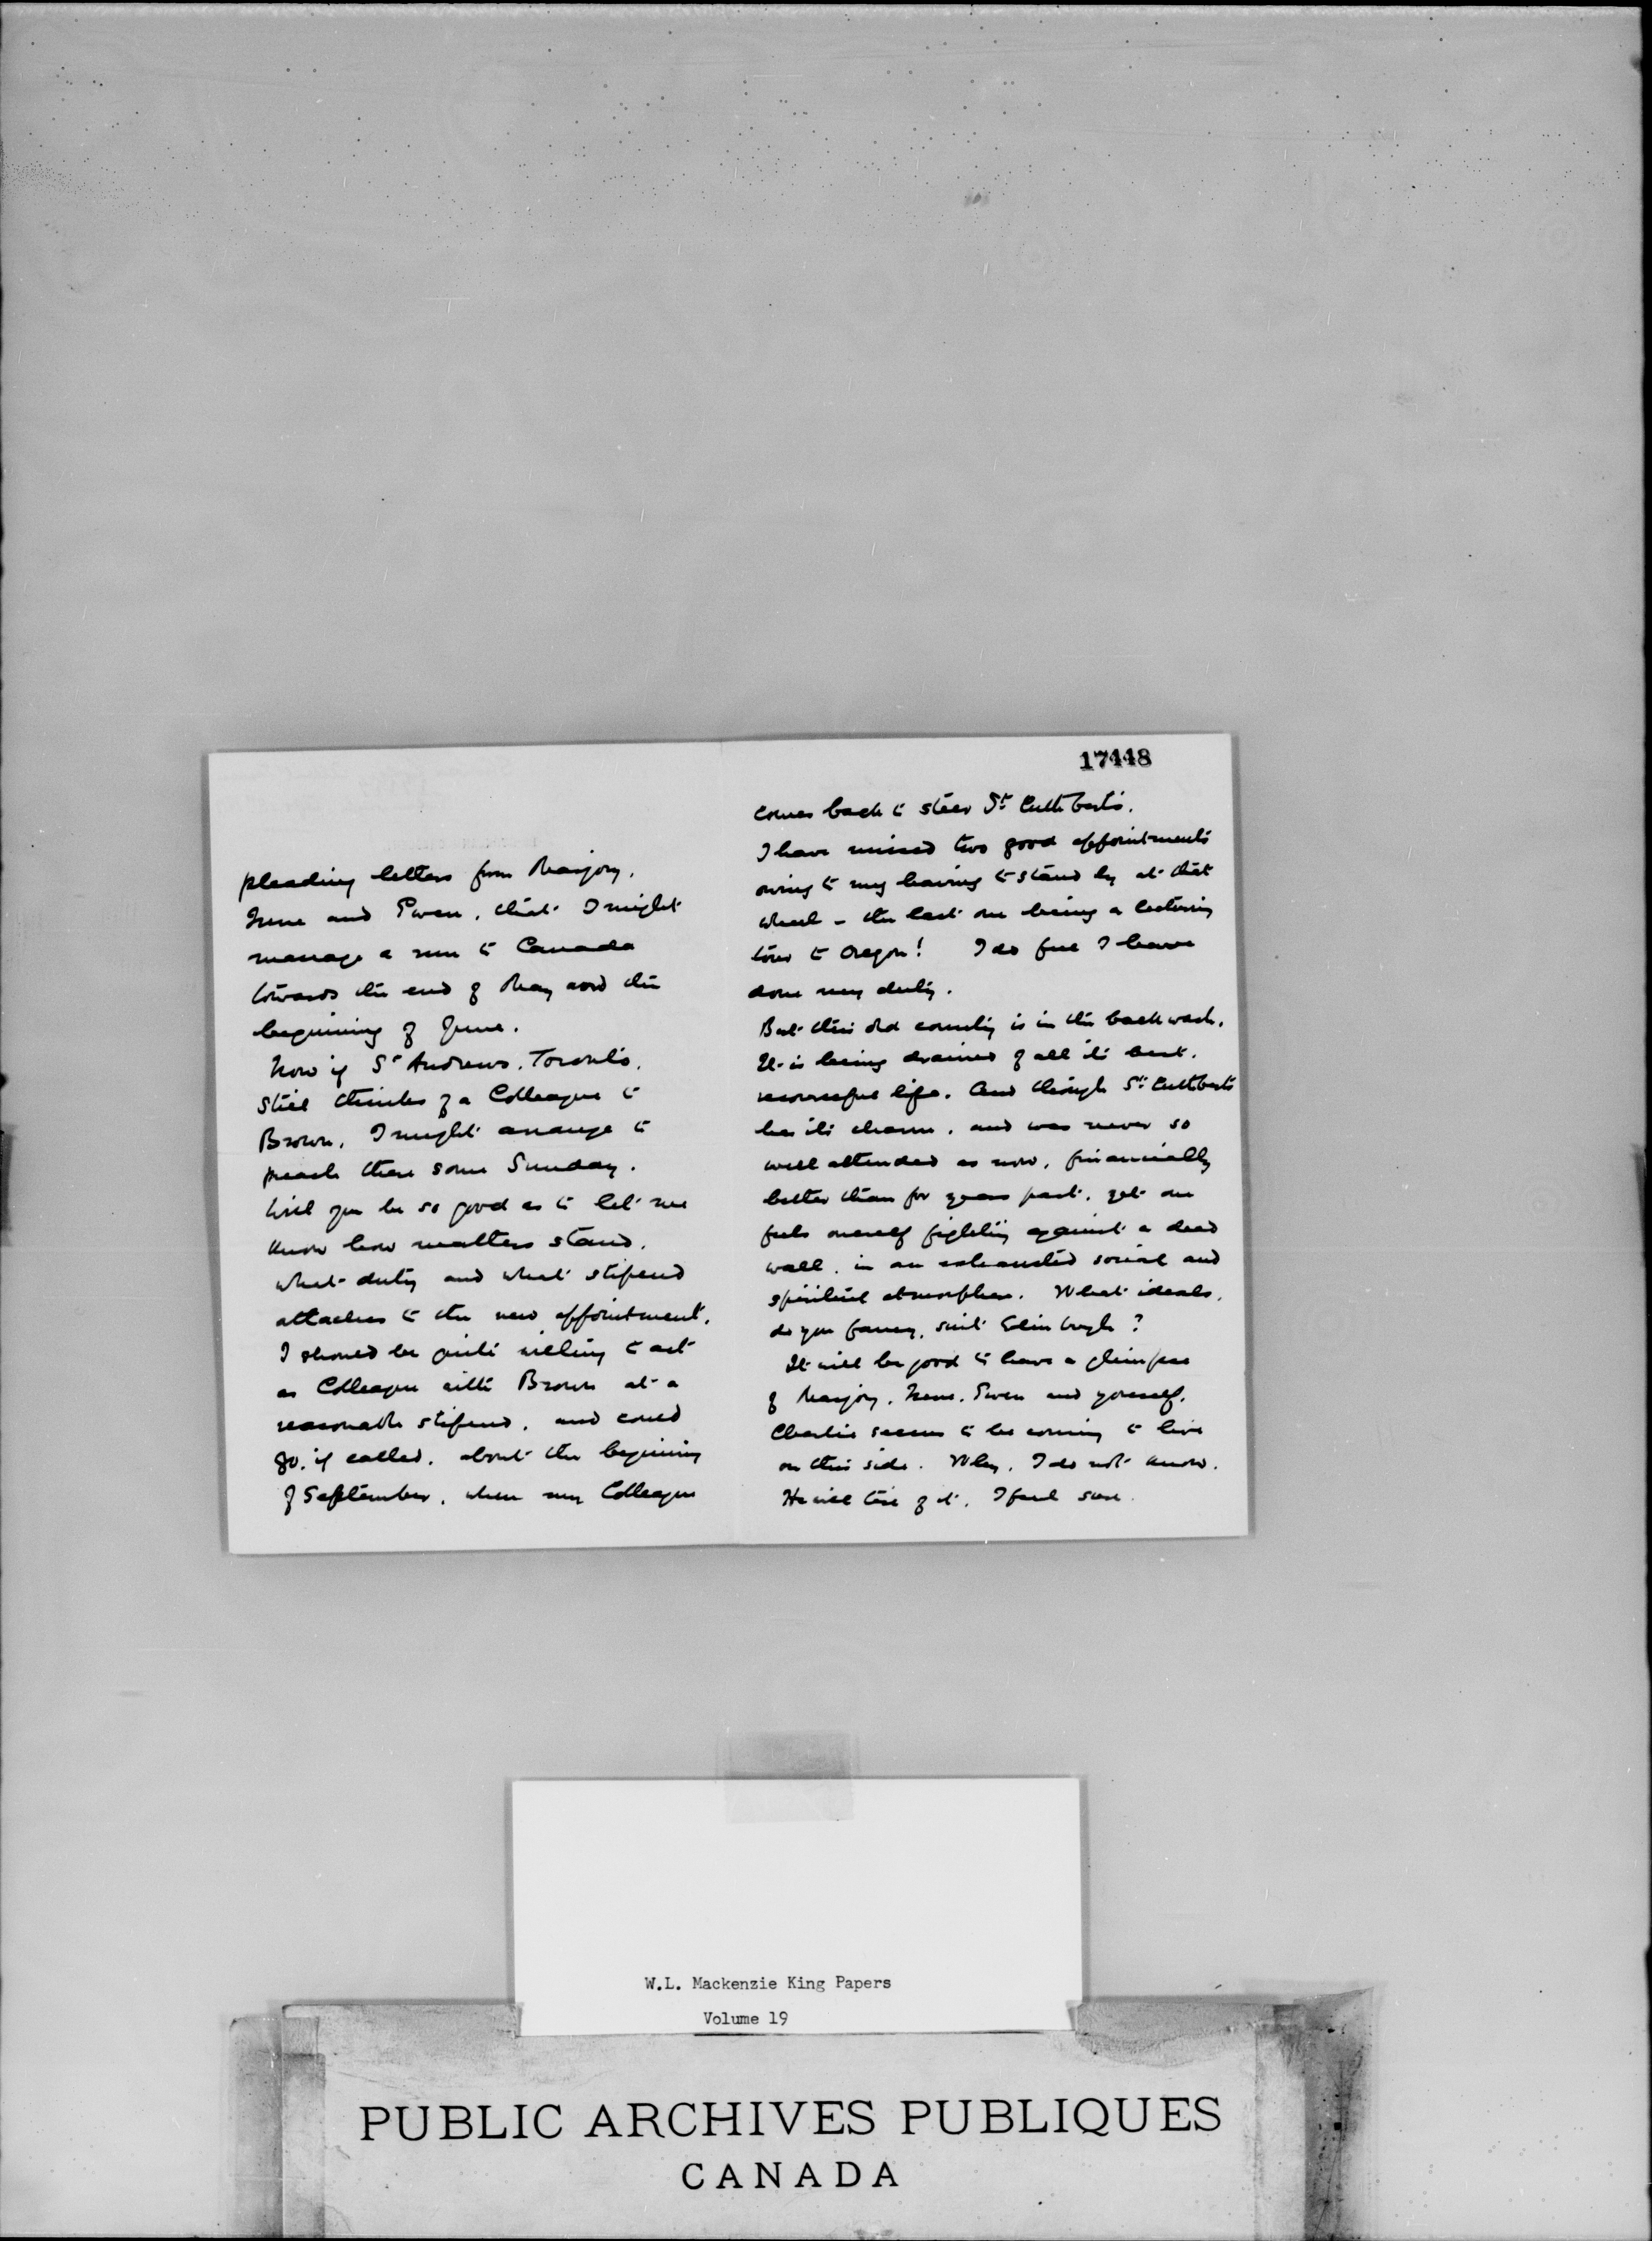 pleading letters from Marjory,
Irene and Ewen, that I might
manage a run to Canada
towards the end of May and the
beginning of June.
Now if St Andrews, Toronto,
still thinks of a Colleague to
Brown, I might arrange to
preach there some Sunday.
Will you be so good as to let me
know how matters stand,
what duty and what stipend
attaches to the new appointment.
I should be quite willing to act
as Colleague with Brown at a
reasonable stipend, and could
go, if called, about the beginning
of September, when my Colleague
17448
comes back to steer St Cuthberts.
I have missed two good appointments
owing to my having to stand by at that
wheel – the last one being a lecturing
tour to Oregon! I do feel I have
done my duty.
But this old country is in the backwash.
It is being drained of all its best,
resourceful life. And though St Cuthberts
has its charm, and was never so
well attended as now, financially
better than for years past, yet one
feels oneself fighting against a dead
wall, in an exhausted social and
spiritual atmosphere. What ideals,
do you fancy, suit Edinburgh?
It will be good to have a glimpse
of Marjory, Irene, Ewen and yourself.
Charlie seems to be coming to live
on this side. Why, I do not know.
He will tire of it, I feel sure.
W.L. Mackenzie King Papers
Volume 19
PUBLIC ARCHIVES PUBLIQUES
CANADA